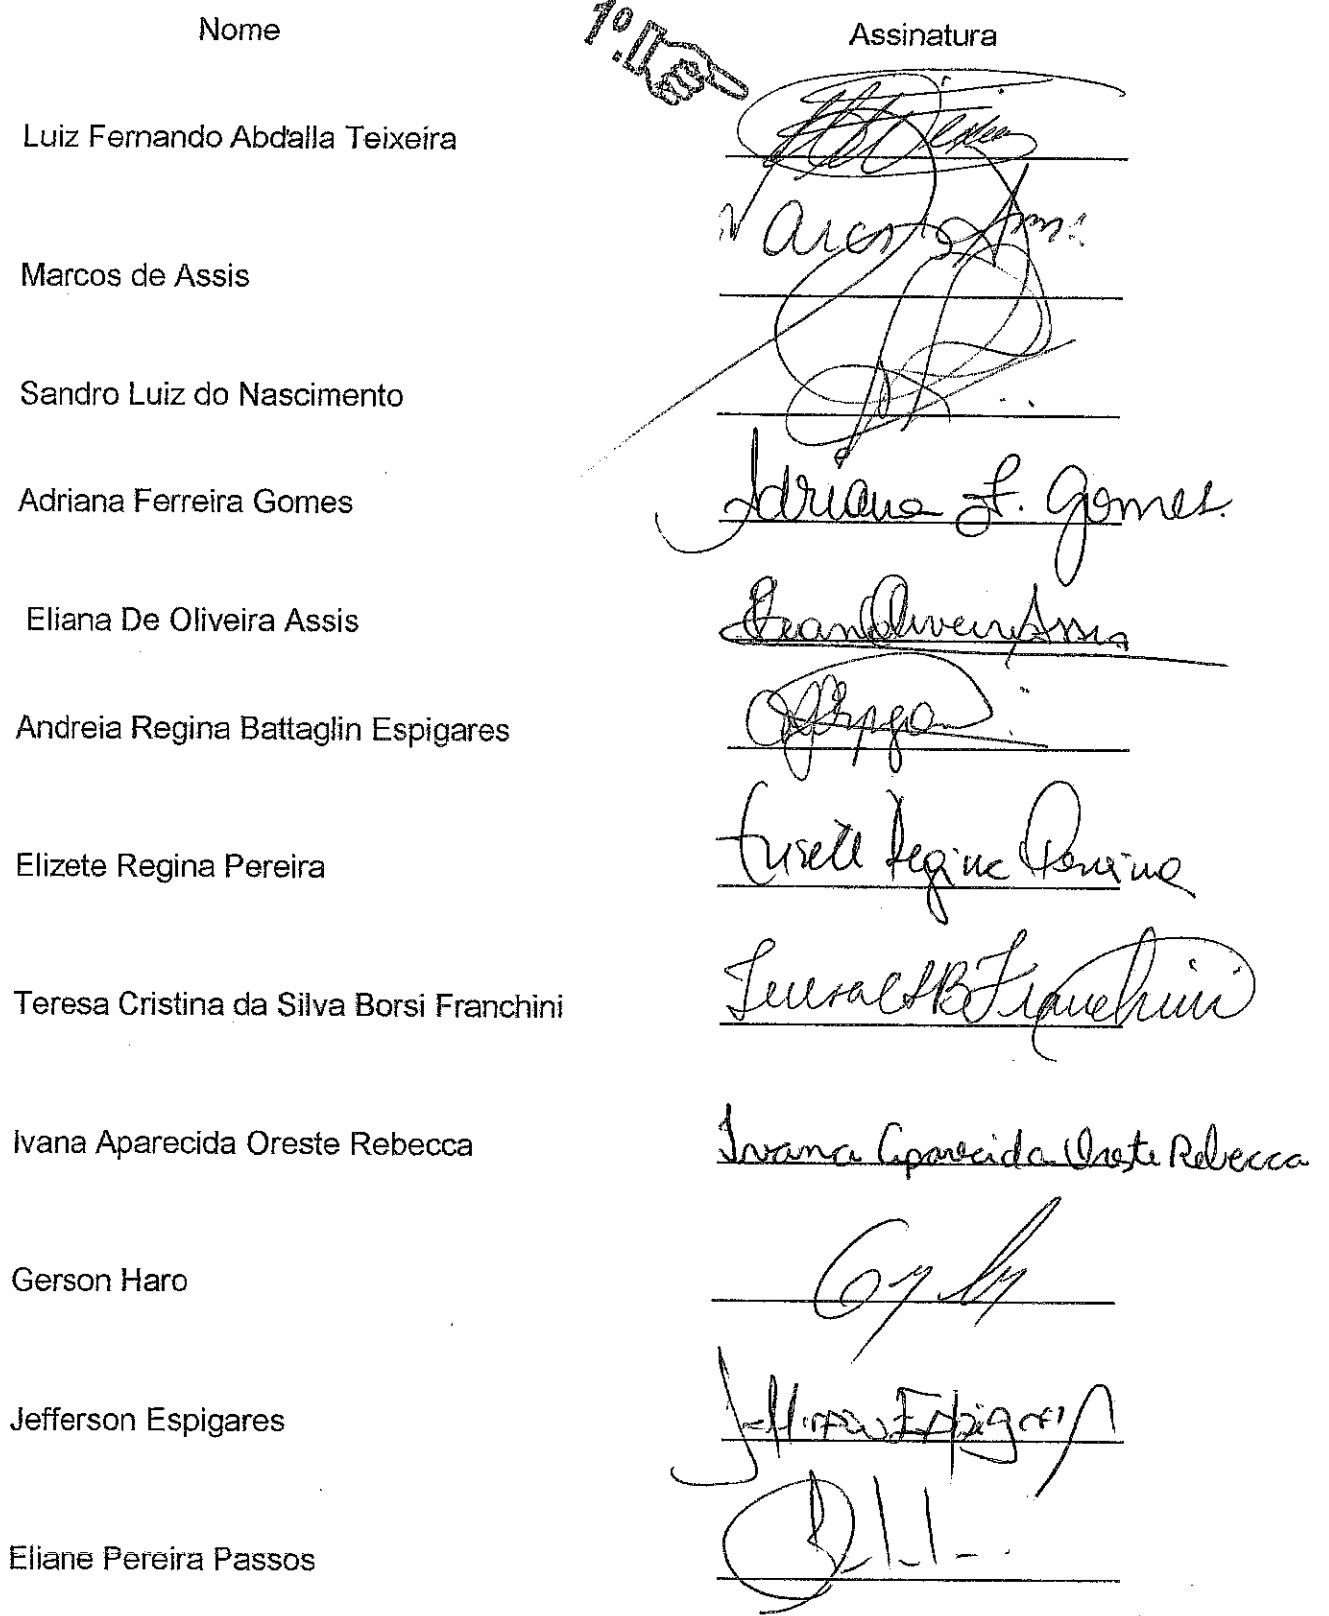 Nome 1º. Assinatura
Luiz Fernando Abdalla Teixeira
Marcos de Assis
Sandro Luiz do Nascimento
Adriana Ferreira Gomes Adriana F. Gomes.
Eliana De Oliveira Assis
Andreia Regina Battaglin Espigares
Elizete Regina Pereira Regina Pereira
Teresa Cristina da Silva Borsi Franchini Teresa C S B Franchini
Ivana Aparecida Oreste Rebecca Ivana Aparecida Oreste Rebecca
Gerson Haro
Jefferson Espigares Jefferson Espigares
Eliane Pereira Passos